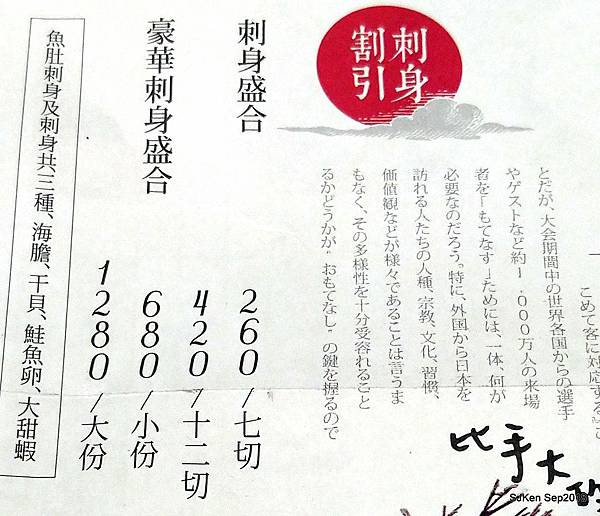 刺身
割引
こめて客に対応する」こ
とだが、大会期間中の世界各国からの選手
やゲストなど約1.000万人の来場
者を「もてなす」ためには、一体、何が
必要なのだろう。特に、外国から日本を
訪れる人たちの人種、宗教、文化、習慣、
価値観などが様々であることは言うま
もなく、その多様性を十分受容れること
るかどうかが“おもてなし”の鍵を握るので
刺身盛合
260/七切
420/十二切
豪華刺身盛合
680/小份
1280/大份
魚肚刺身及刺身共三種、海膽、干貝、鮭魚卵、大甜蝦
比手大